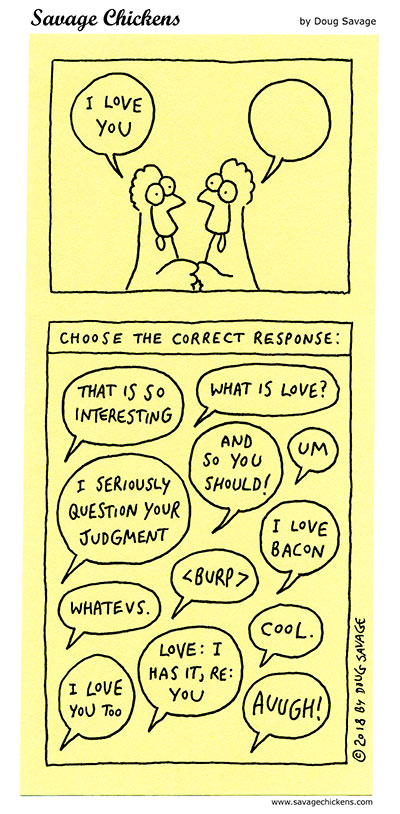 Savage Chickens
by Doug Savage
I LOVE
YOU
CHOOSE THE CORRECT RESPONSE:
THAT IS SO
INTERESTING
WHAT IS LOVE?
AND
SO YOU
SHOULD!
UM
I SERIOUSLY
QUESTION YOUR
JUDGMENT
I LOVE
BACON
<BURP>
WHATEVS.
COOL.
LOVE: I
HAS IT, RE:
YOU
I LOVE
YOU TOO
AUUGH!
© 2018 BY DOUG SAVAGE
www.savagechickens.com